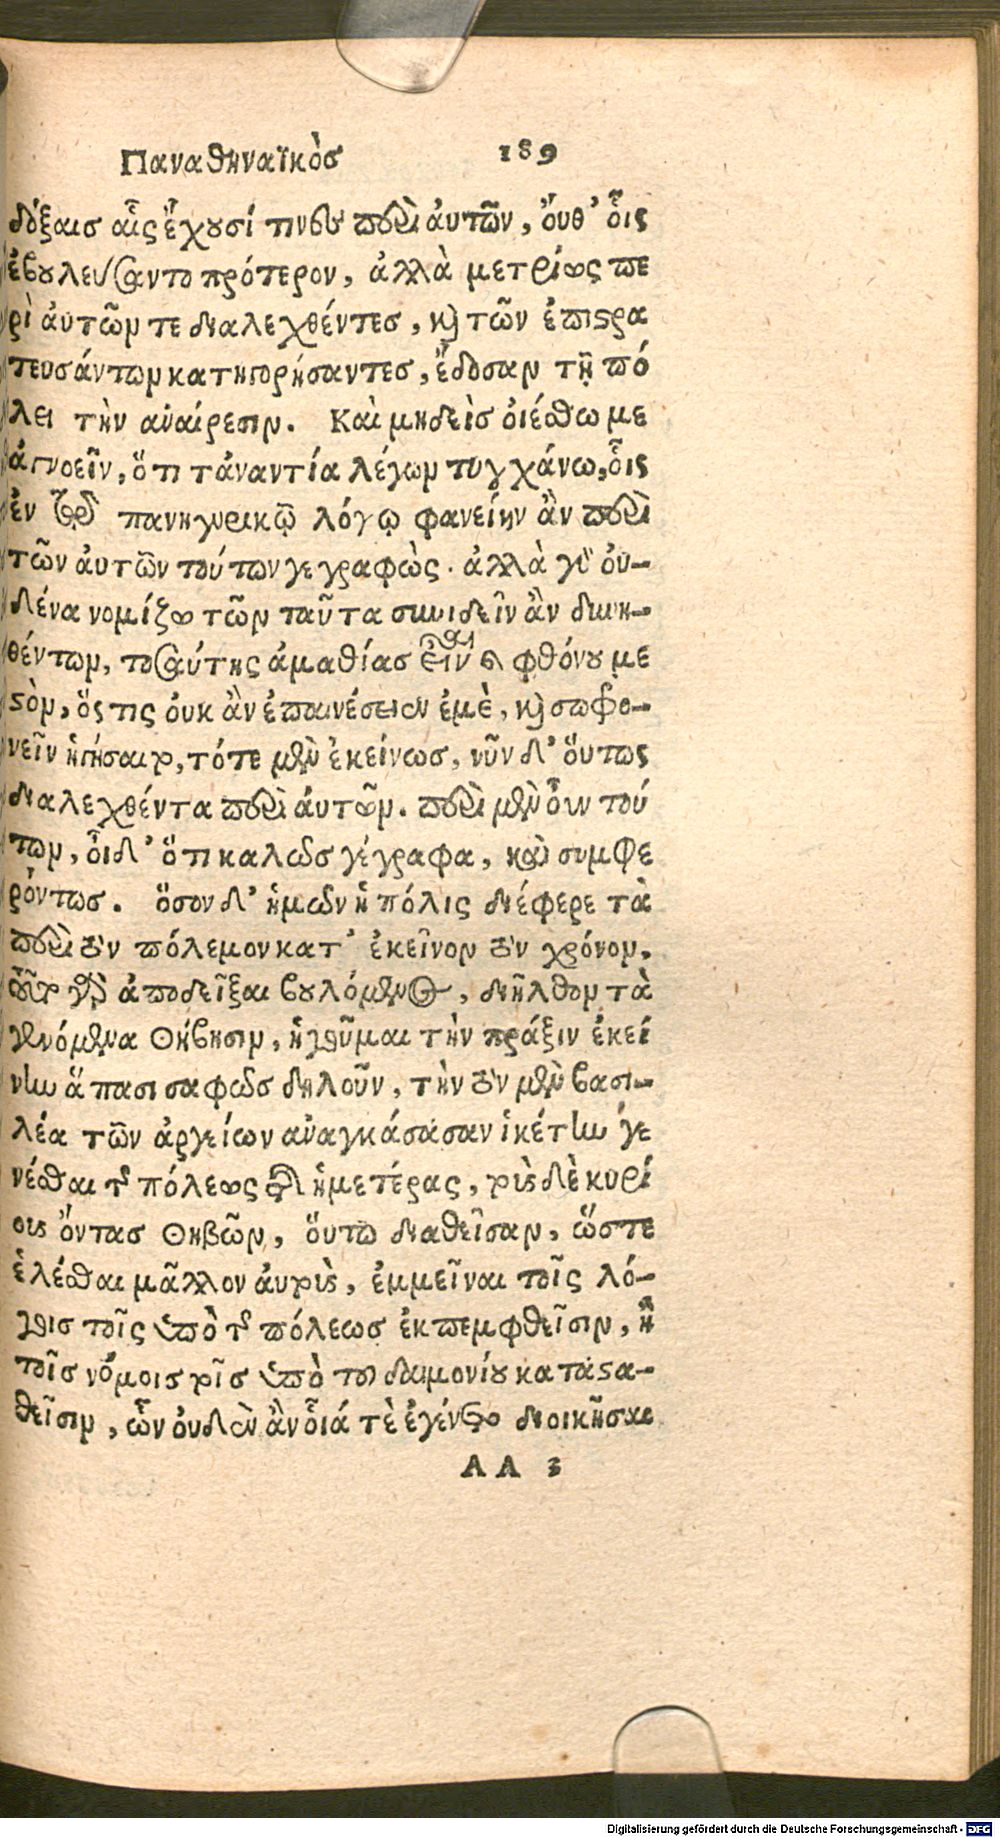 Παναθηναϊκὸσ 189
δόξαισ αἷς ἔχουσί τινες περὶ ἀυτῶν, ὄυθ' οἷς
ἐβουλεύσαντο πρότερον, ἀλλὰ μετρίως πε
ρὶ ἀυτῶν τε διαλεχθέντεσ, καὶ τῶν ἐπιστρα
τευσάντων κατηγορήσαντεσ, ἔδοσαν τῇ πό
λει τὴν ἀναίρεσιν. Καὶ μηδεὶσ ὀιέσθω με
ἀγνοεῖν, ὅτι τἀναντία λέγων τυγχάνω, οἷς
ἐν τῷ πανηγυρικῷ λόγῳ φανείην ἂν περὶ
τῶν ἀυτῶν τούτων γεγραφὼς. ἀλλὰ γὰρ ὀυ-
δένα νομίζω τῶν ταῦτα συνιδεῖν ἂν δυνη-
θέντων, τοσαύτης ἀμαθίας εἶναι καὶ φθόνου με
στὸν, ὅς τις ὀυκ ἂν ἐπαινέσειεν ἐμὲ, καὶ σωφρο-
νεῖν ἡγήσαιτο, τότε μὲν ἐκείνωσ, νῦν δ' ὅυτως
διαλεχθέντα περὶ ἀυτῶν. περὶ μὲν ὀῦν τού
των, ὀῖδ' ὅτι καλῶσ γέγραφα, καὶ συμφε
ρόντωσ. ὅσον δ' ἡμῶν ἡ πόλις διέφερε τὰ
περὶ τὸν πόλεμον κατ' ἐκεῖνον τὸν χρόνον,
τοῦτο γὰρ ἀποδεῖξαι βουλόμενος, διῆλθον τὰ
γενόμενα Θήβησιν, ἡγοῦμαι τὴν πρᾶξιν ἐκεί
νην ἅπασι σαφῶσ δηλοῦν, τὴν τὸν μὲν βασι-
λέα τῶν ἀργείων ἀναγκάσασαν ἱκέτην γε
νέσθαι τῆς πόλεως τῆς ἡμετέρας, τοὺς δὲ κυρί
ους ὄντασ Θηβῶν, ὅυτω διαθεῖσαν, ὥστε
ἑλέσθαι μᾶλλον ἀυτοὺς, ἐμμεῖναι τοῖς λό-
γοισ τοῖς ὑπὸ τῆς πόλεωσ ἐκπεμφθεῖσιν, ἢ
τοῖσ νόμοισ τοῖσ ὑπὸ τοῦ δαιμονίου καταστα-
θεῖσιν, ὧν ὀυδὲν ἂν οἷά τὲ ἐγένετο διοικῆσαι
AA 3
Digitalisierung gefördert durch die Deutsche Forschungsgemeinschaft - DFG